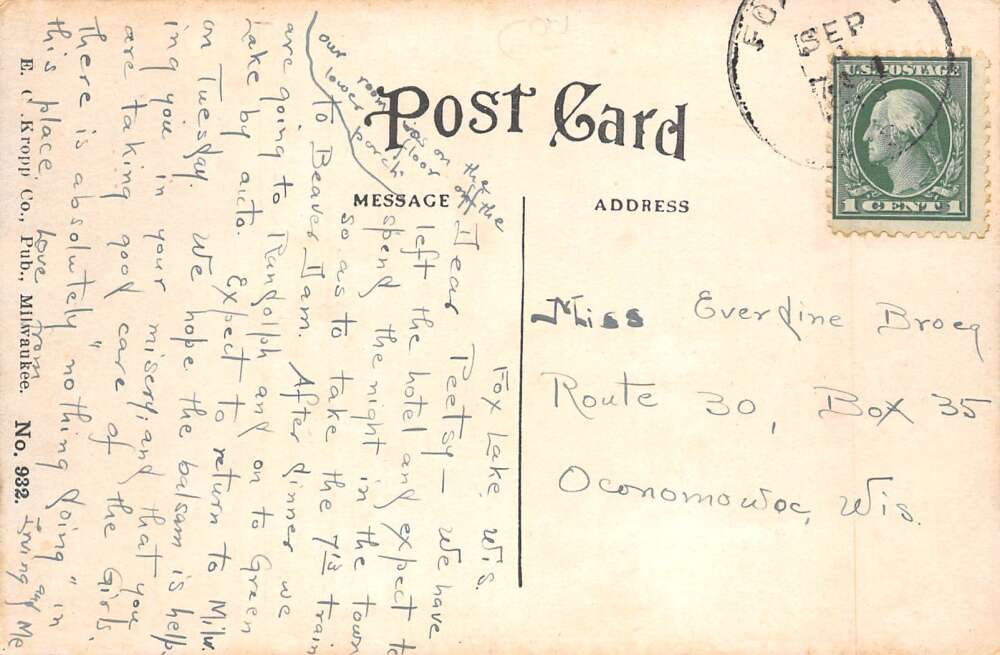 POST CARD
MESSAGE
ADDRESS
FO
SEP
U.S. POSTAGE
1 CENT 1
Miss Everdine Brocq
Route 30, Box 35
Oconomowoc, Wis.
Fox Lake, Wis.
Dear Peetsy - We have
left the hotel and expect to
spend the night in the town
so as to take the 7 15 train
to Beaver Dam. After dinner we
are going to Randolph and on to Green
Lake by auto. Expect to return to Milw.
on Tuesday. We hope the balsam is help-
ing you in your misery, and that you
are taking good care of the Girls.
There is absolutely "nothing doing" in
this place. Love from Irving and Me
our room is on the
lower floor off the
porch
E. C. Kropp Co., Pub., Milwaukee. No. 932.